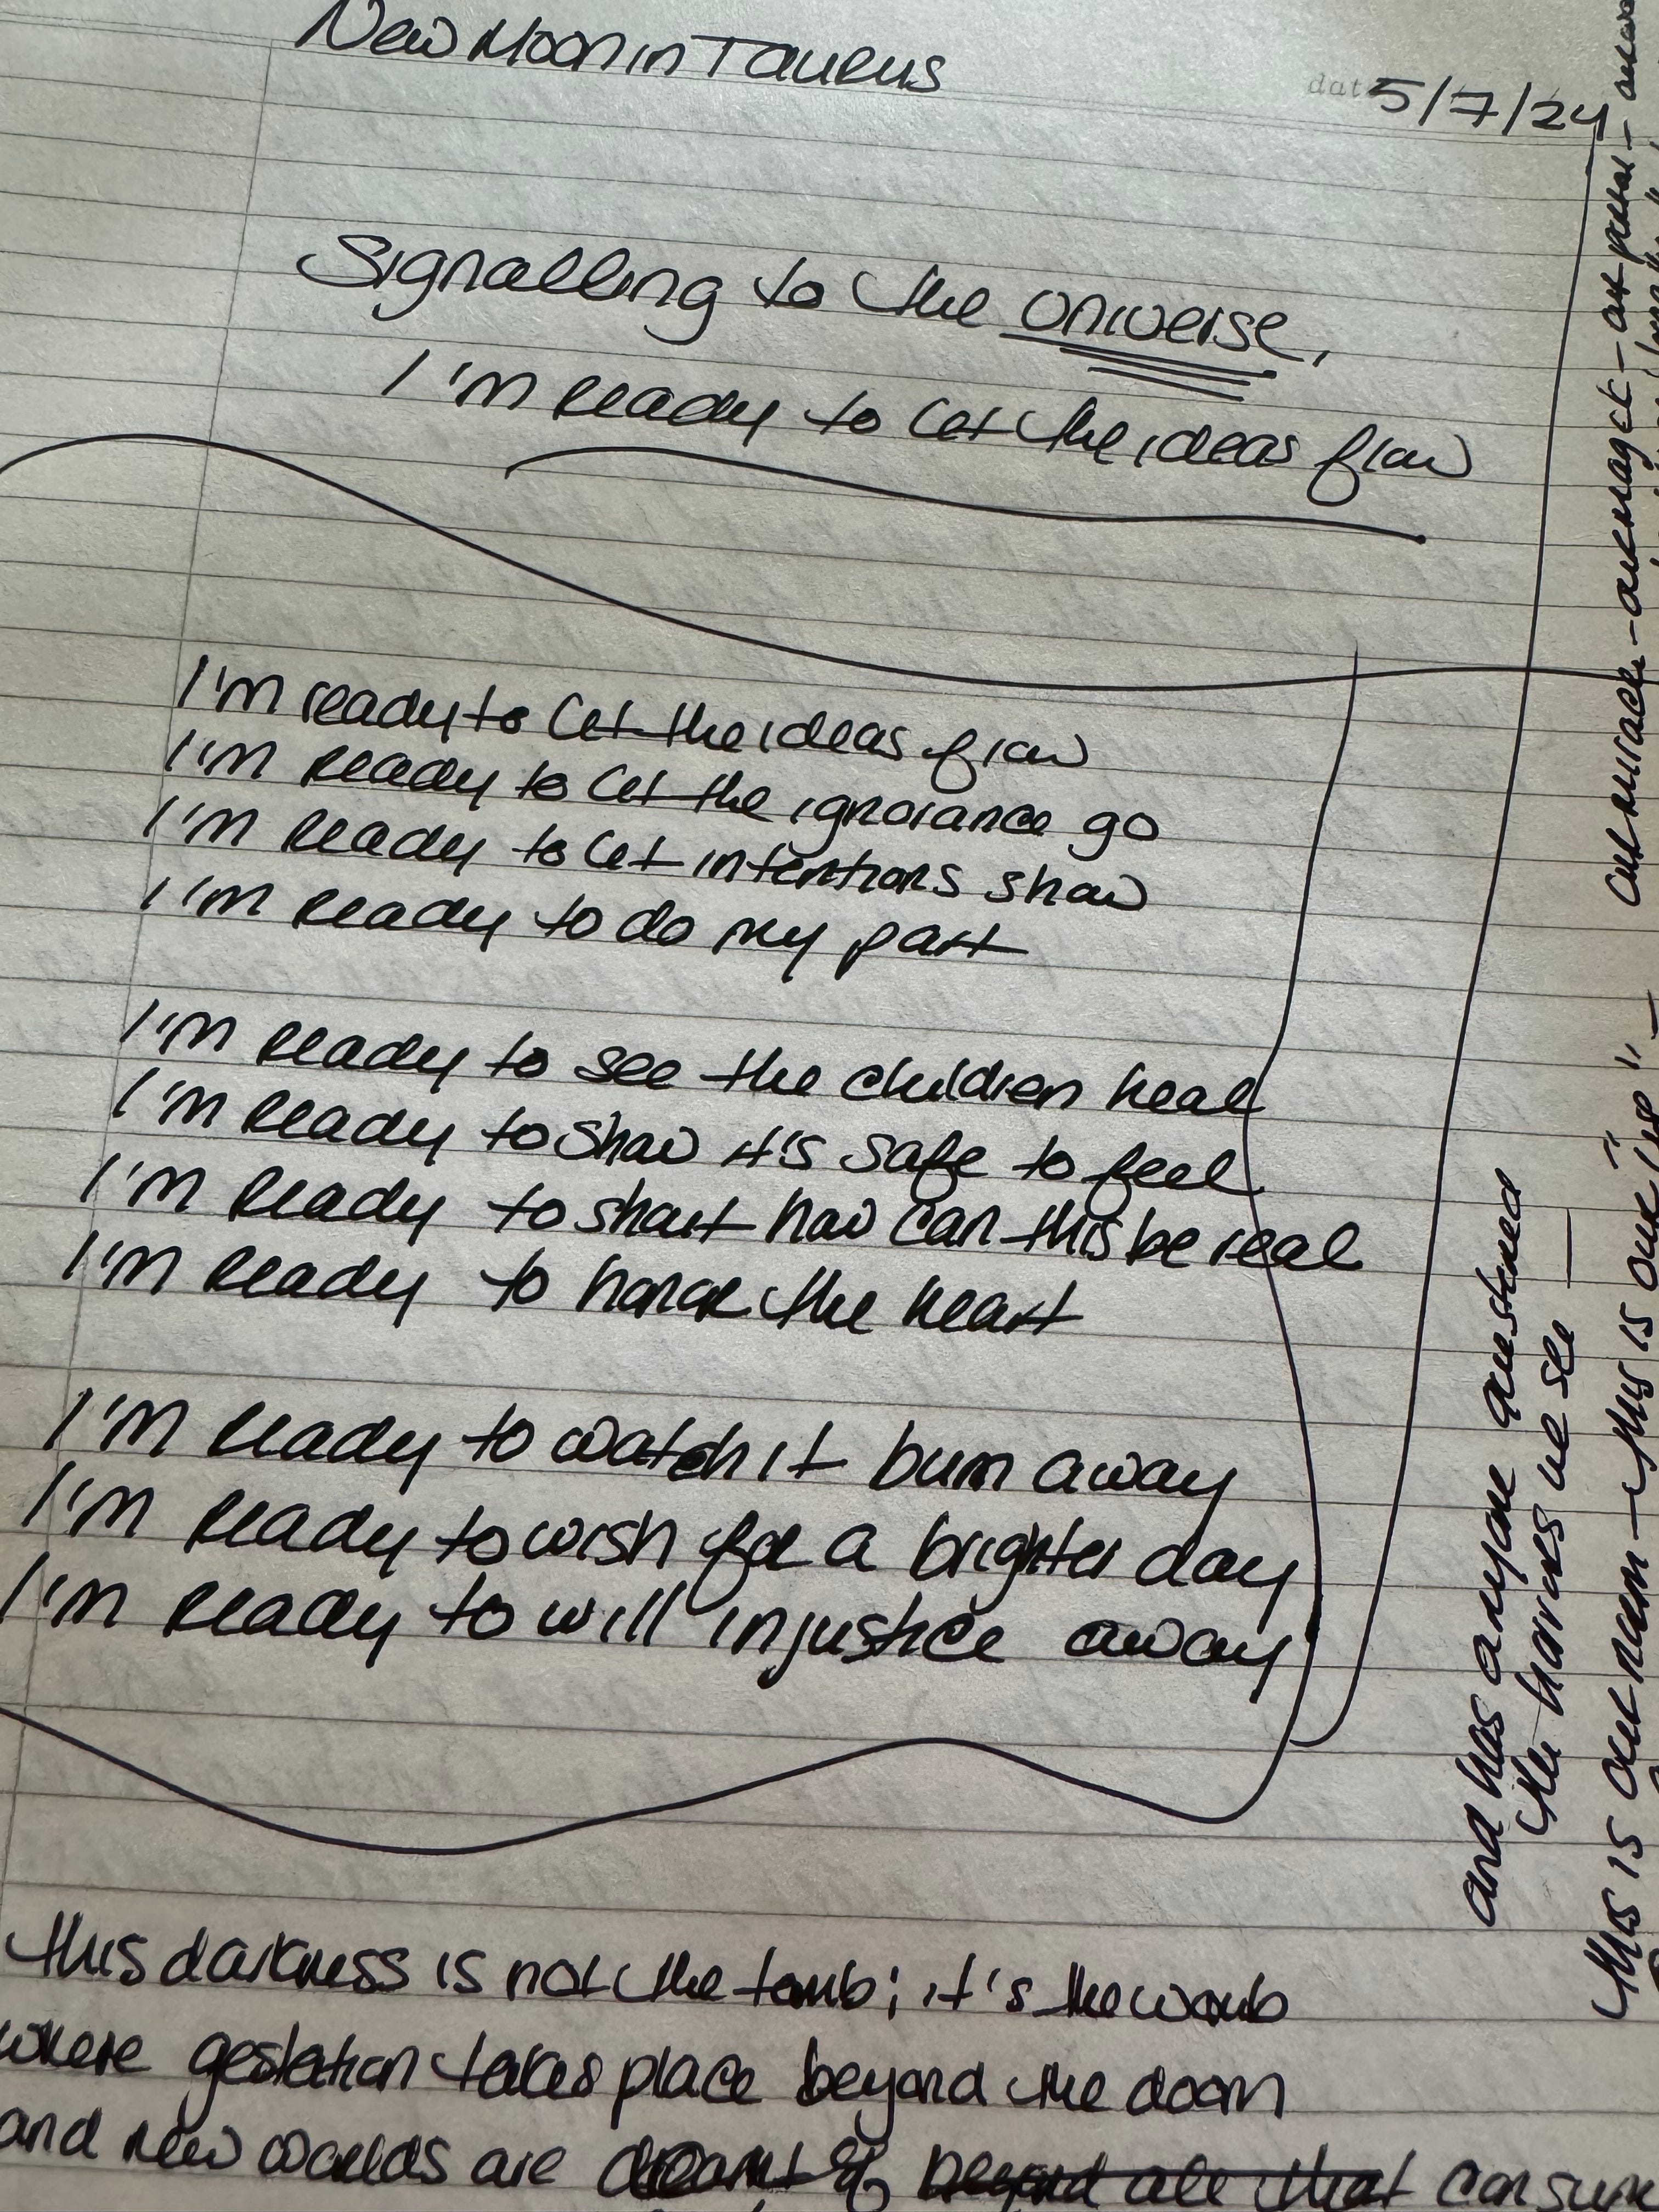 New Moon in Taurus
date 5/7/24
Signalling to the Universe,
I'm ready to let the ideas flow
I'm ready to let the ideas flow
I'm ready to let the ignorance go
I'm ready to let intentions show
I'm ready to do my part
I'm ready to see the children heal
I'm ready to show it's safe to feel
I'm ready to shout how can this be real
I'm ready to honor the heart
I'm ready to watch it burn away
I'm ready to wish for a brighter day
I'm ready to will injustice away
this darkness is not the tomb; it's the womb
where gestation takes place beyond the doom
and new worlds are dreamt of beyond all that consume
and has anyone questioned
the horrors we see —
this is our room — this is our